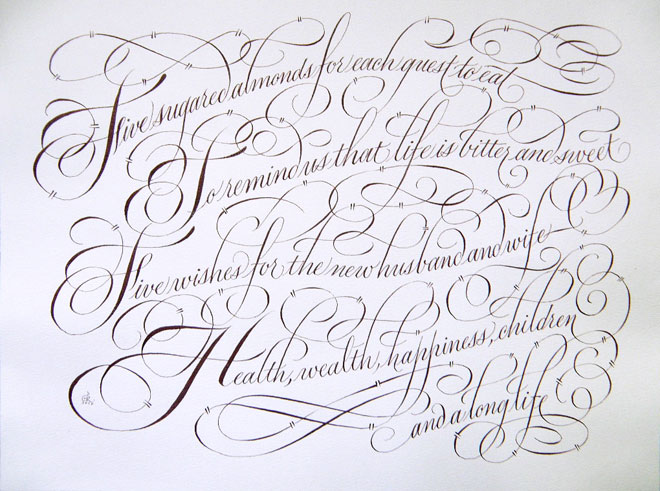 Five sugared almonds for each guest to eat
To remind us that life is bitter and sweet
Five wishes for the new husband and wife
Health, wealth, happiness, children
and a long life